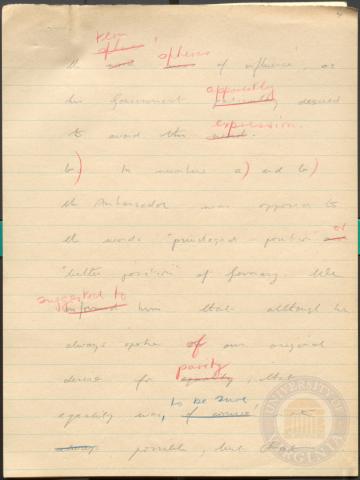 term
phrase
the and 'spheres of influence', as
his Government apparently desired
to avoid this word.
expression.
b) In numbers a) and b)
the Ambassador was opposed to
the words "privileged position" or
"better position" of Germany. We
suggested to
informed him that although we
always spoke of our original
desire for equality, that
parity
equality was, of course, not
to be sure
always possible, but that
UNIVERSITY OF VIRGINIA